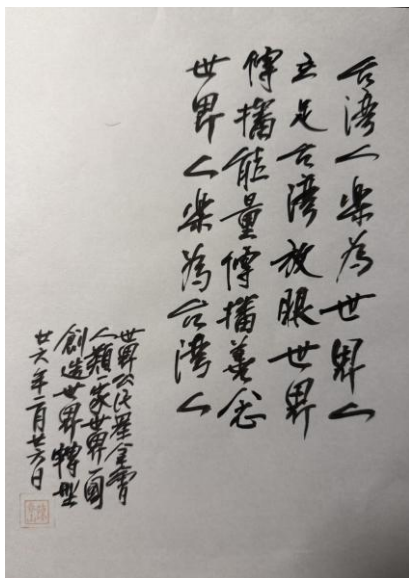 台湾人樂為世界人
立足台湾放眼世界
傳播能量傳播善念
世界人樂為台湾人
世界公民基金會
人類家世界一國
創造世界轉型
廿六年一月廿六日